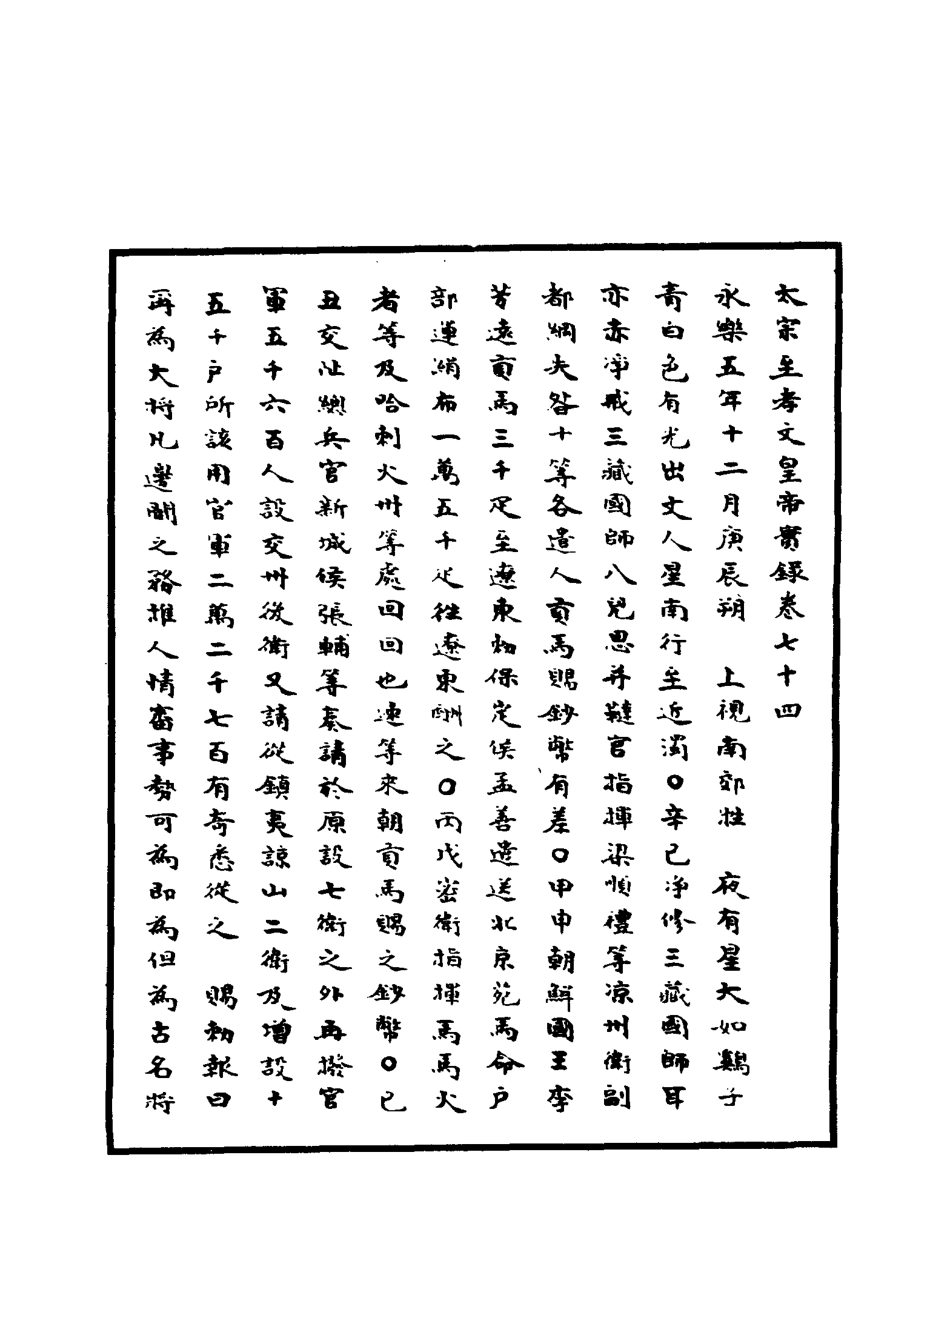 太宗至孝文皇帝實錄卷七十四
永樂五年十二月庚辰朔　上視南郊牲　夜有星大如鷄子
青白色有光出文人星南行至近濁○辛巳净修三藏國師耳
亦赤净戒三藏國師八兒思并韃官指揮梁順禮等凉州衛副
都綱失咎十等各遣人貢馬賜鈔幣有差○甲申朝鮮國王李
芳遠貢馬三千疋至遼東勑保定侯孟善遣送北京苑馬命户
部運絹布一萬五千疋徃遼東酬之○丙戌密衛指揮馬馬火
者等及哈剌火州等處回回也速等來朝貢馬賜之鈔幣○己
丑交阯總兵官新城侯張輔等奏請於原設七衛之外再撥官
軍五千六百人設交州後衛又請從鎮夷諒山二衛及增設十
五千户所該用官軍二萬二千七百有奇悉從之　賜勑報曰
爾為大將凡邊關之務推人情審事勢可為即為但為古名將